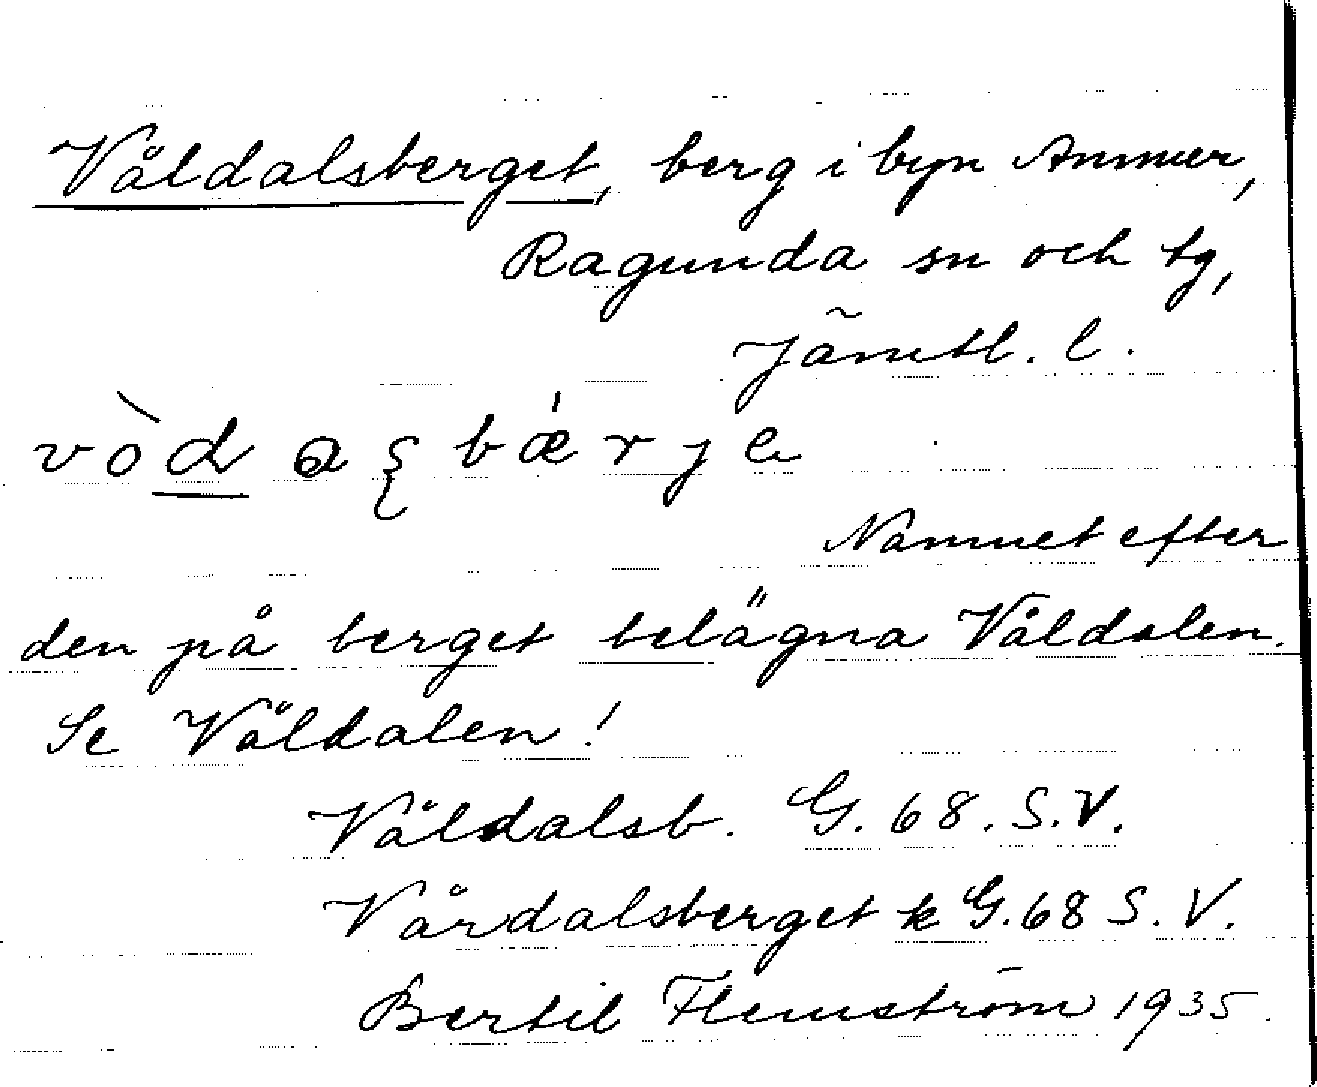 Våldalsberget, berg i byn Ammer,
Ragunda sn och tg,
Jämtl. l.
vòd a ʂ bǽ r j e
Namnet efter
den på berget belägna Våldalen.
Se Våldalen!
Våldalsb. G. 68. S.V.
Vårdalsberget k G. 68 S. V.
Bertil Flemström 1935.